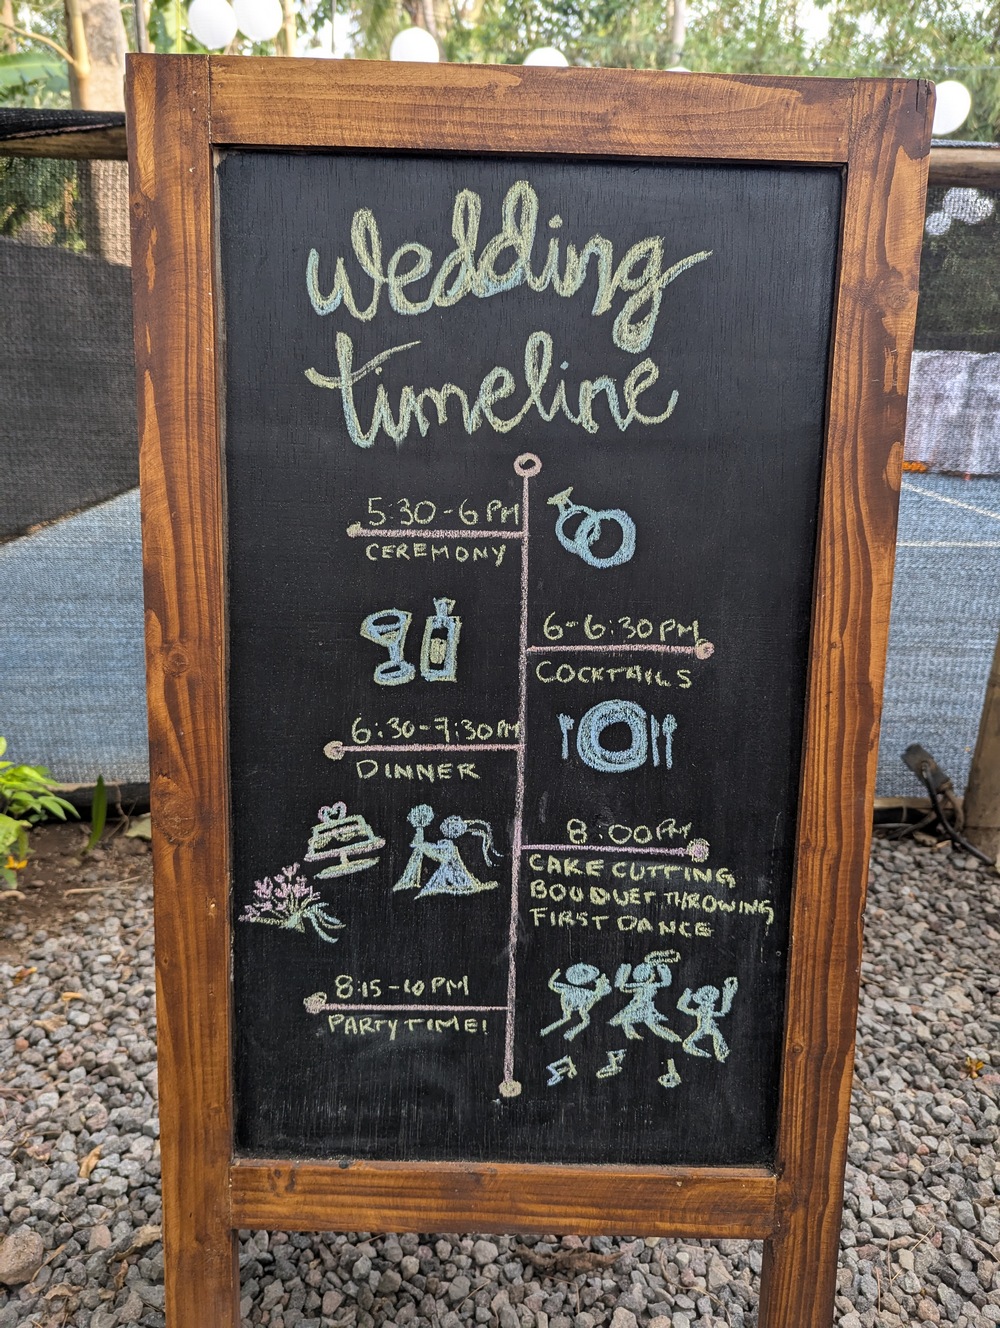 wedding
timeline
5:30-6 PM
CEREMONY
6-6:30PM
COCKTAILS
6:30-7:30PM
DINNER
8:00PM
CAKE CUTTING
BOUQUET THROWING
FIRST DANCE
8:15-10 PM
PARTY TIME!